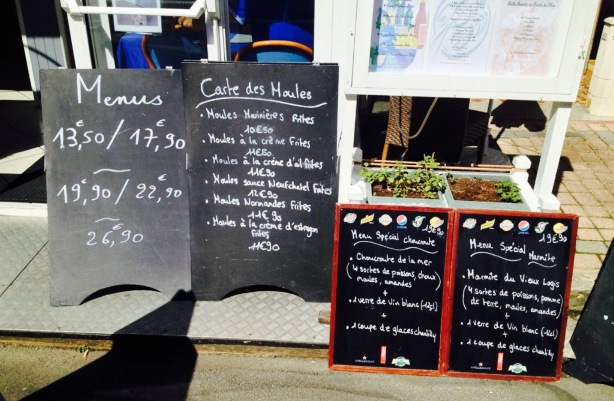 Menus
13,50€ / 17,90€
19,90€ / 22,90€
26,90€
Carte des Moules
• Moules Marinières Frites
10€50
• Moules à la crème Frites
11€50
• Moules à la crème d'ail Frites
11€90
• Moules sauce Neufchatel Frites
12€90
• Moules Normandes Frites
11€90
• Moules à la crème d'estragon
Frites
11€90
pepsi
Menu Spécial choucroute
• Choucroute de la mer
(4 sortes de poissons, choux
moules, amandes)
+
• 1 verre de vin blanc
+
• 1 coupe de glaces chantilly
pepsi
19€90
Menu Spécial
Marmite
• Marmite du Vieux Logis
(4 sortes de poissons, pomme
de terre, moules, amandes)
+
• 1 verre de Vin blanc
+
• 1 coupe de glaces chantilly